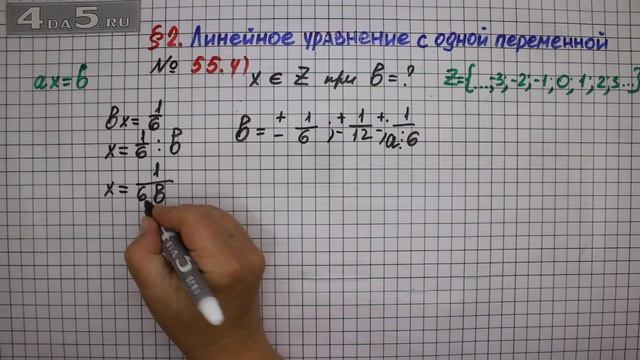 4DA5.RU
§2. Линейное уравнение с одной переменной
№ 55.4) x ∈ Z при b = ?
ax=b
Z={...,-3;-2;-1;0;1;2;3...}
bx=1/6
x=1/6 : b
x=1/6b
b= +- 1/6 ; +- 1/12 ; +- 1/a:6
4DA5